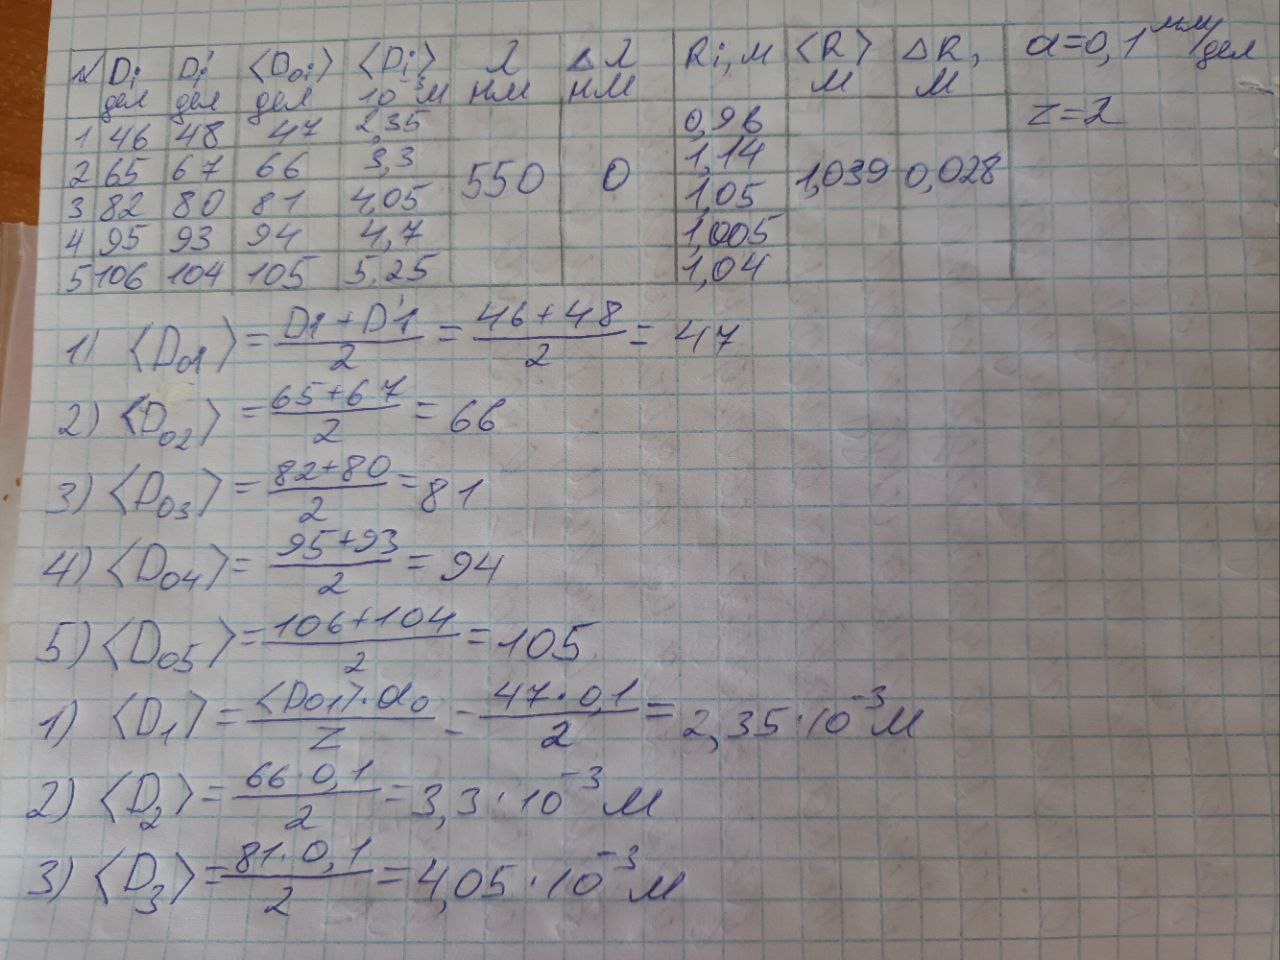 № Di дел D'i дел <Doi> дел <Di> 10⁻³м λ нм Δλ нм Ri, м <R> м ΔR, м α=0,1 мм/дел
z=2
1 46 48 47 2,35 0,96
2 65 67 66 3,3 550 0 1,14 1,039 0,028
3 82 80 81 4,05 1,05
4 95 93 94 4,7 1,005
5 106 104 105 5,25 1,04
1) <Do1> = (D1 + D'1)/2 = (46 + 48)/2 = 47
2) <Do2> = (65+67)/2 = 66
3) <Do3> = (82+80)/2 = 81
4) <Do4> = (95+93)/2 = 94
5) <Do5> = (106+104)/2 = 105
1) <D1> = (<Do1>·αo)/z = (47·0,1)/2 = 2,35·10⁻³м
2) <D2> = (66·0,1)/2 = 3,3·10⁻³м
3) <D3> = (81·0,1)/2 = 4,05·10⁻³м